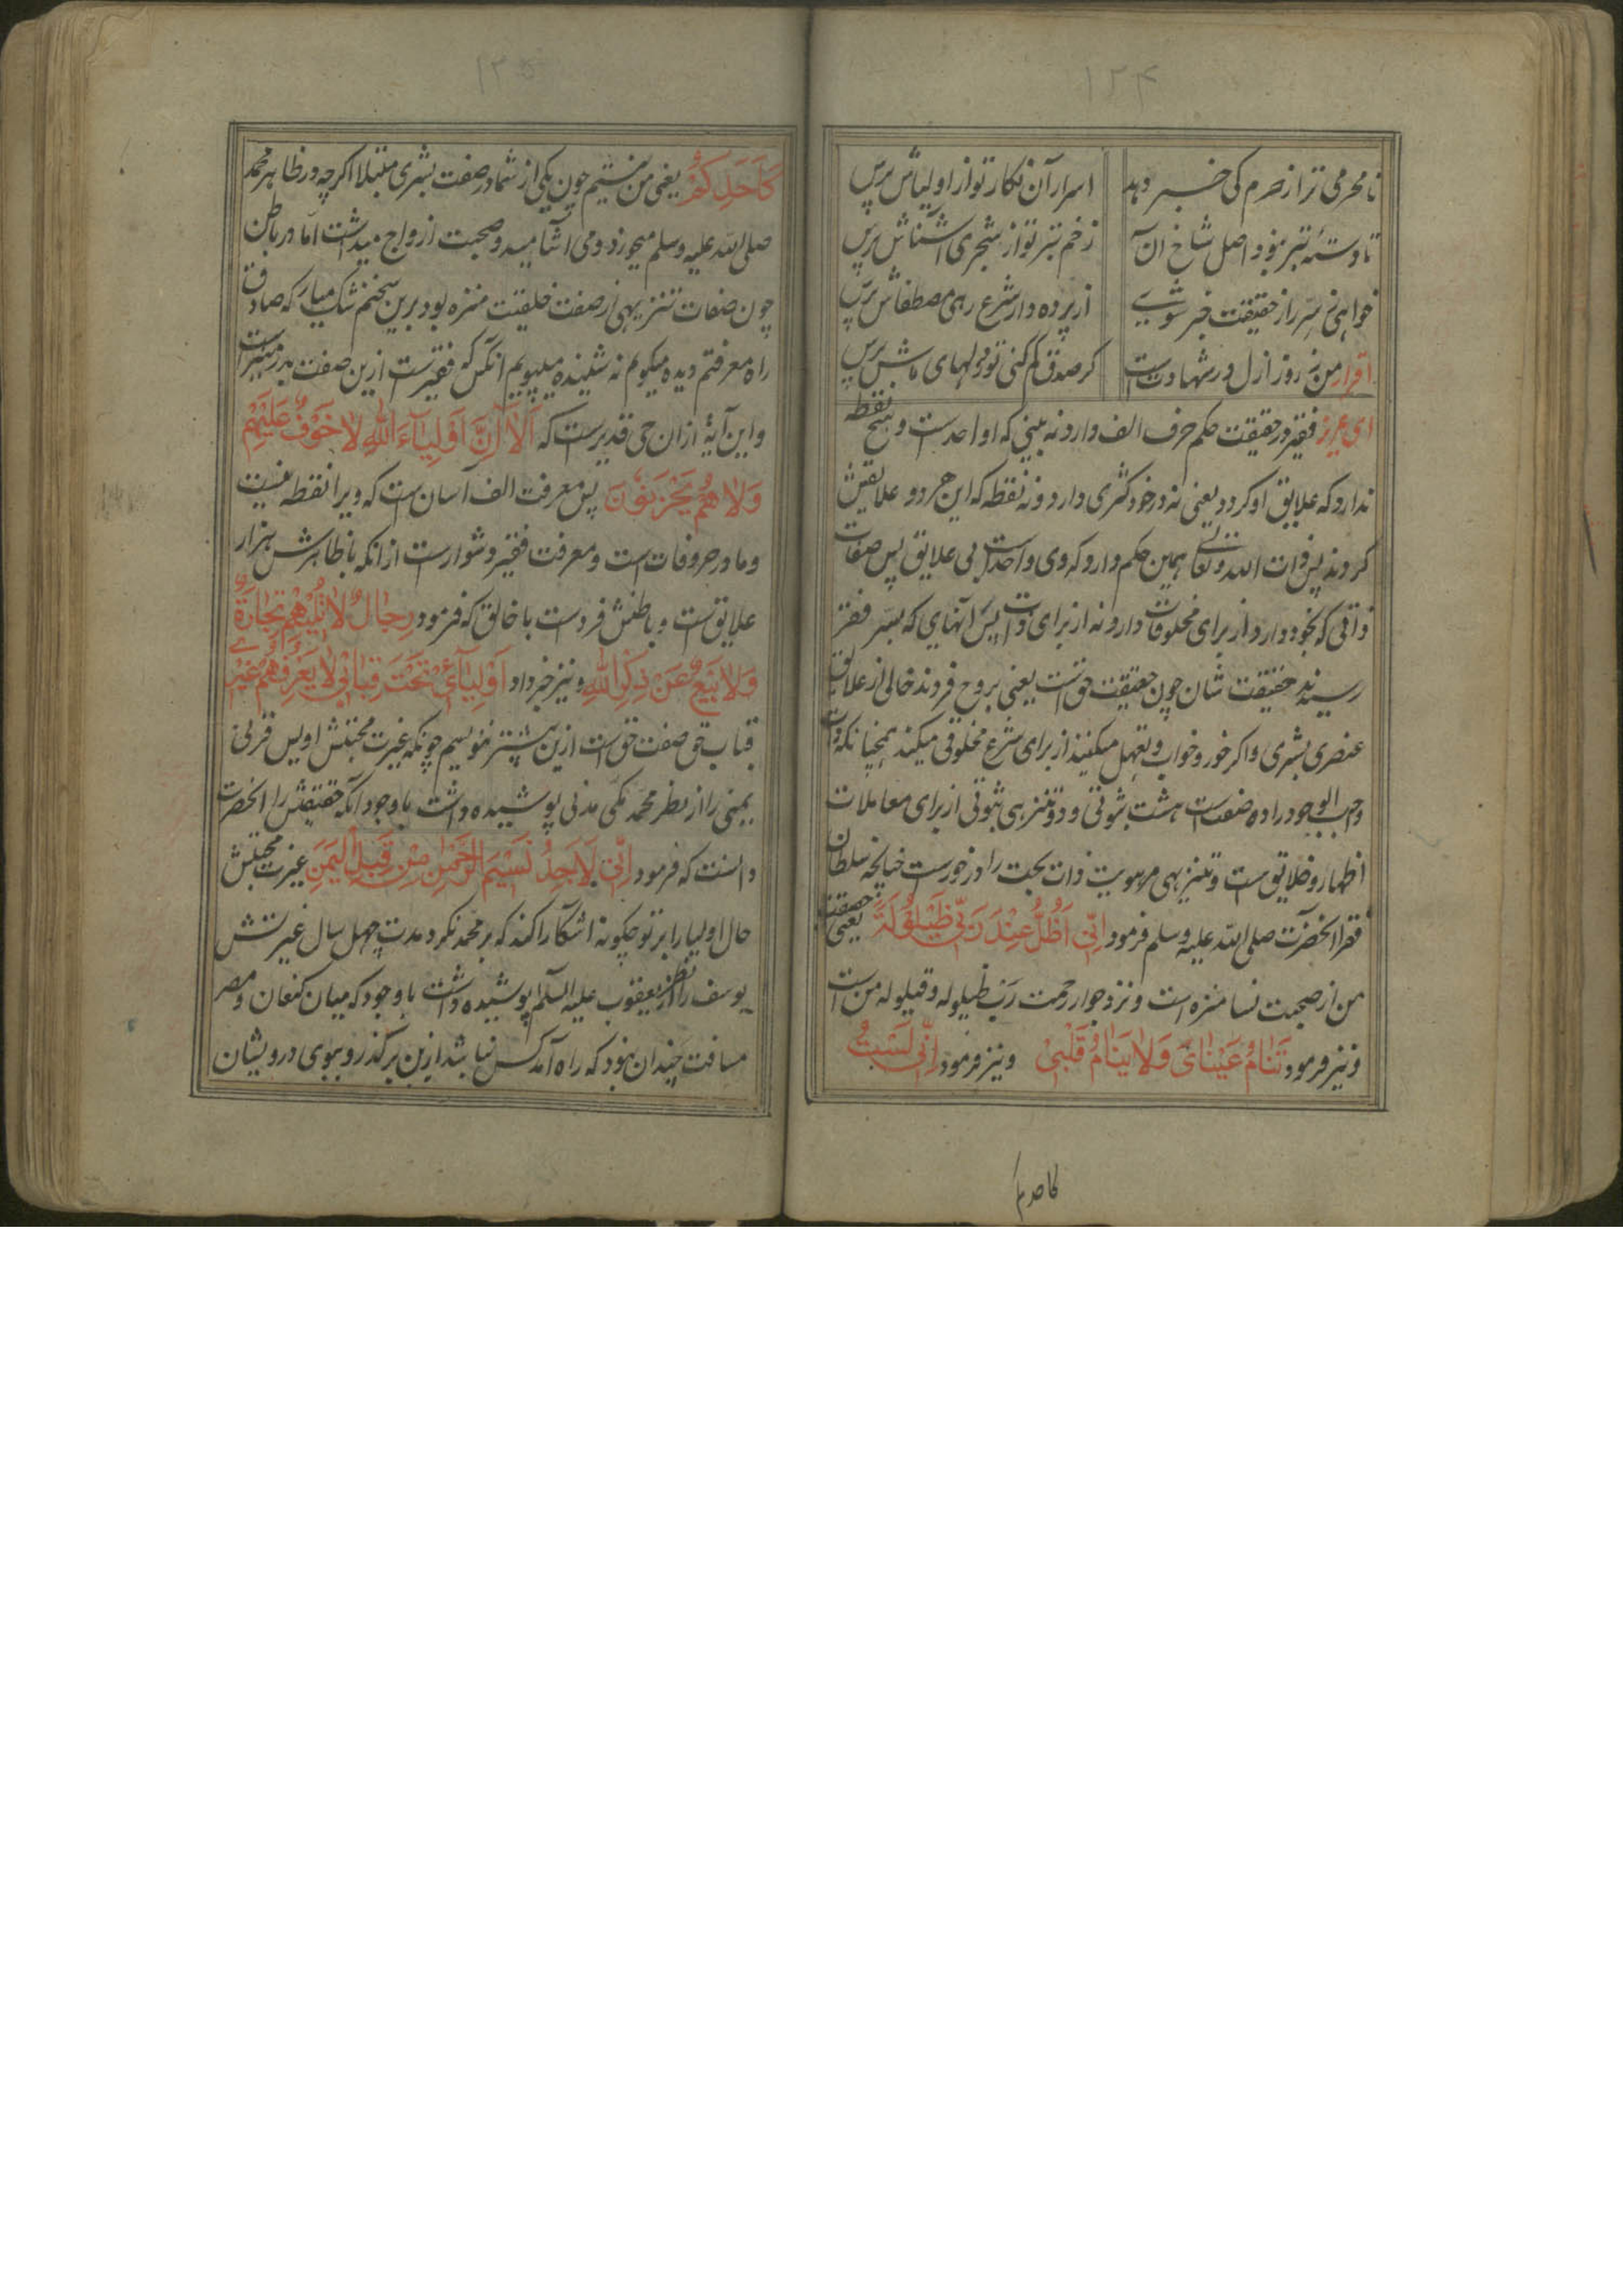 ۱۳۴
نامحرمی ترا ز حرم کی خبر دهد اسرار آن نکار تو از اولیاش پرس
تا دستهٔ تبر نبود اصل شاخ آن زخم تبر تو از شجری آشناش پرس
خواهی ز سر راز حقیقت خبر شوی از پرده دار شرع رهی مصطفاش پرس
اقرار من ز روز ازل در شهادتست کر صدق کم کنی تو دلهای ماش پرس
ای عزیز فقیر در حقیقت حکم حرف الف دارد نه بینی که او احدست و هیچ نقطه
ندارد که علایق او کردد یعنی نه در خود کثری دارد و نه نقطه که این هر دو علایقش
کردند پس ذات الله تعالی همین حکم دارد که وی واحدست بی علایق پس صفات
ذاتی که بخود دارد از برای مخلوقات دارد نه از برای ذات پس آنهای که بسر فقر
رسیدند حقیقت شان چون حقیقت حق است یعنی بروح فردند خالی از علایق
عنصری بشری و اکر خور و خواب و تعهل میکنند از برای شرع مخلوقی میکنند همچنانکه ذات
واجب الوجود را ده صفت است هشت ثبوتی و دو تنزیهی ثبوتی از برای معاملات
اظهار و خلایق ست و تنزیهی مر هویت ذات بحت را در خورست چنانچه سلطان
فقرا آنحضرت صلی الله علیه وسلم فرمود اِنّی اَظَلُّ عِنْدَ رَبّی ظَیْلُوْلَةً یعنی حقیقت
من از صحبت نسا منزه است و نزد جوار رحمت رب ظیلوله و قیلوله من است
و نیز فرمود تَنَامُ عَیْنَایَ وَلَا یَنَامُ قَلْبِیْ و نیز فرمود اِنّی لَسْتُ
۱۳۵
کَاَحَدِکُمْ یعنی من نیستیم چون یکی از شما در صفت بشری مبتلا اکرچه در ظاهر محمد
صلی الله علیه وسلم میخورد و می آشامید و صحبت ازواج میداشت اما در باطن
چون صفات تنزیهی از صفت خلیقت منزه بود برین سخنم شک میار که صادق
راه معرفتم دیده میکویم نه شنیده میپویم آنکس که فقیرست ازین صفت بدر نیست
و این آیهٔ از ان حی قدیرست که اَلَا اِنَّ اَوْلِیَآءَ اللهِ لَا خَوْفٌ عَلَیْهِمْ
وَلَا هُمْ یَحْزَنُوْنَ پس معرفت الف آسان ست که ویرا نقطه نیست
و ما در حروفات است و معرفت فقیر دشوارست از انکه با ظاهرش هزار
علایق است و باطنش فردست با خالق که فرمود رِجَالٌ لَا تُلْهِیْهِمْ تِجَارَةٌ
وَلَا بَیْعٌ عَنْ ذِکْرِ اللهِ و نیز خبر داد اَوْلِیَآئِیْ تَحْتَ قِبَابِیْ لَا یَعْرِفُهُمْ غَیْرِیْ
قباب حق صفت حق است ازین پیشتر ننویسم چونکه غیرت محبتش اویس قرنی
یمنی را از نظر محمد مکی مدنی پوشیده داشت باوجود آنکه حقیقتش را آنحضرت
دانست که فرمود اِنّی لَاَجِدُ نَسِیْمَ الرَّحْمٰنِ مِنْ قِبَلِ الْیَمَنِ غیرت محبتش
حال اولیا را بر تو چکونه آشکارا کند که بر محمد نکرد مدت چهل سال غیرتش
یوسف را از نظر یعقوب علیه السلم پوشیده داشت باوجود که میان کنعان و مصر
مسافت چندان نبود که راه آمد کس نباشد ازین برکذر و ببوی درویشان